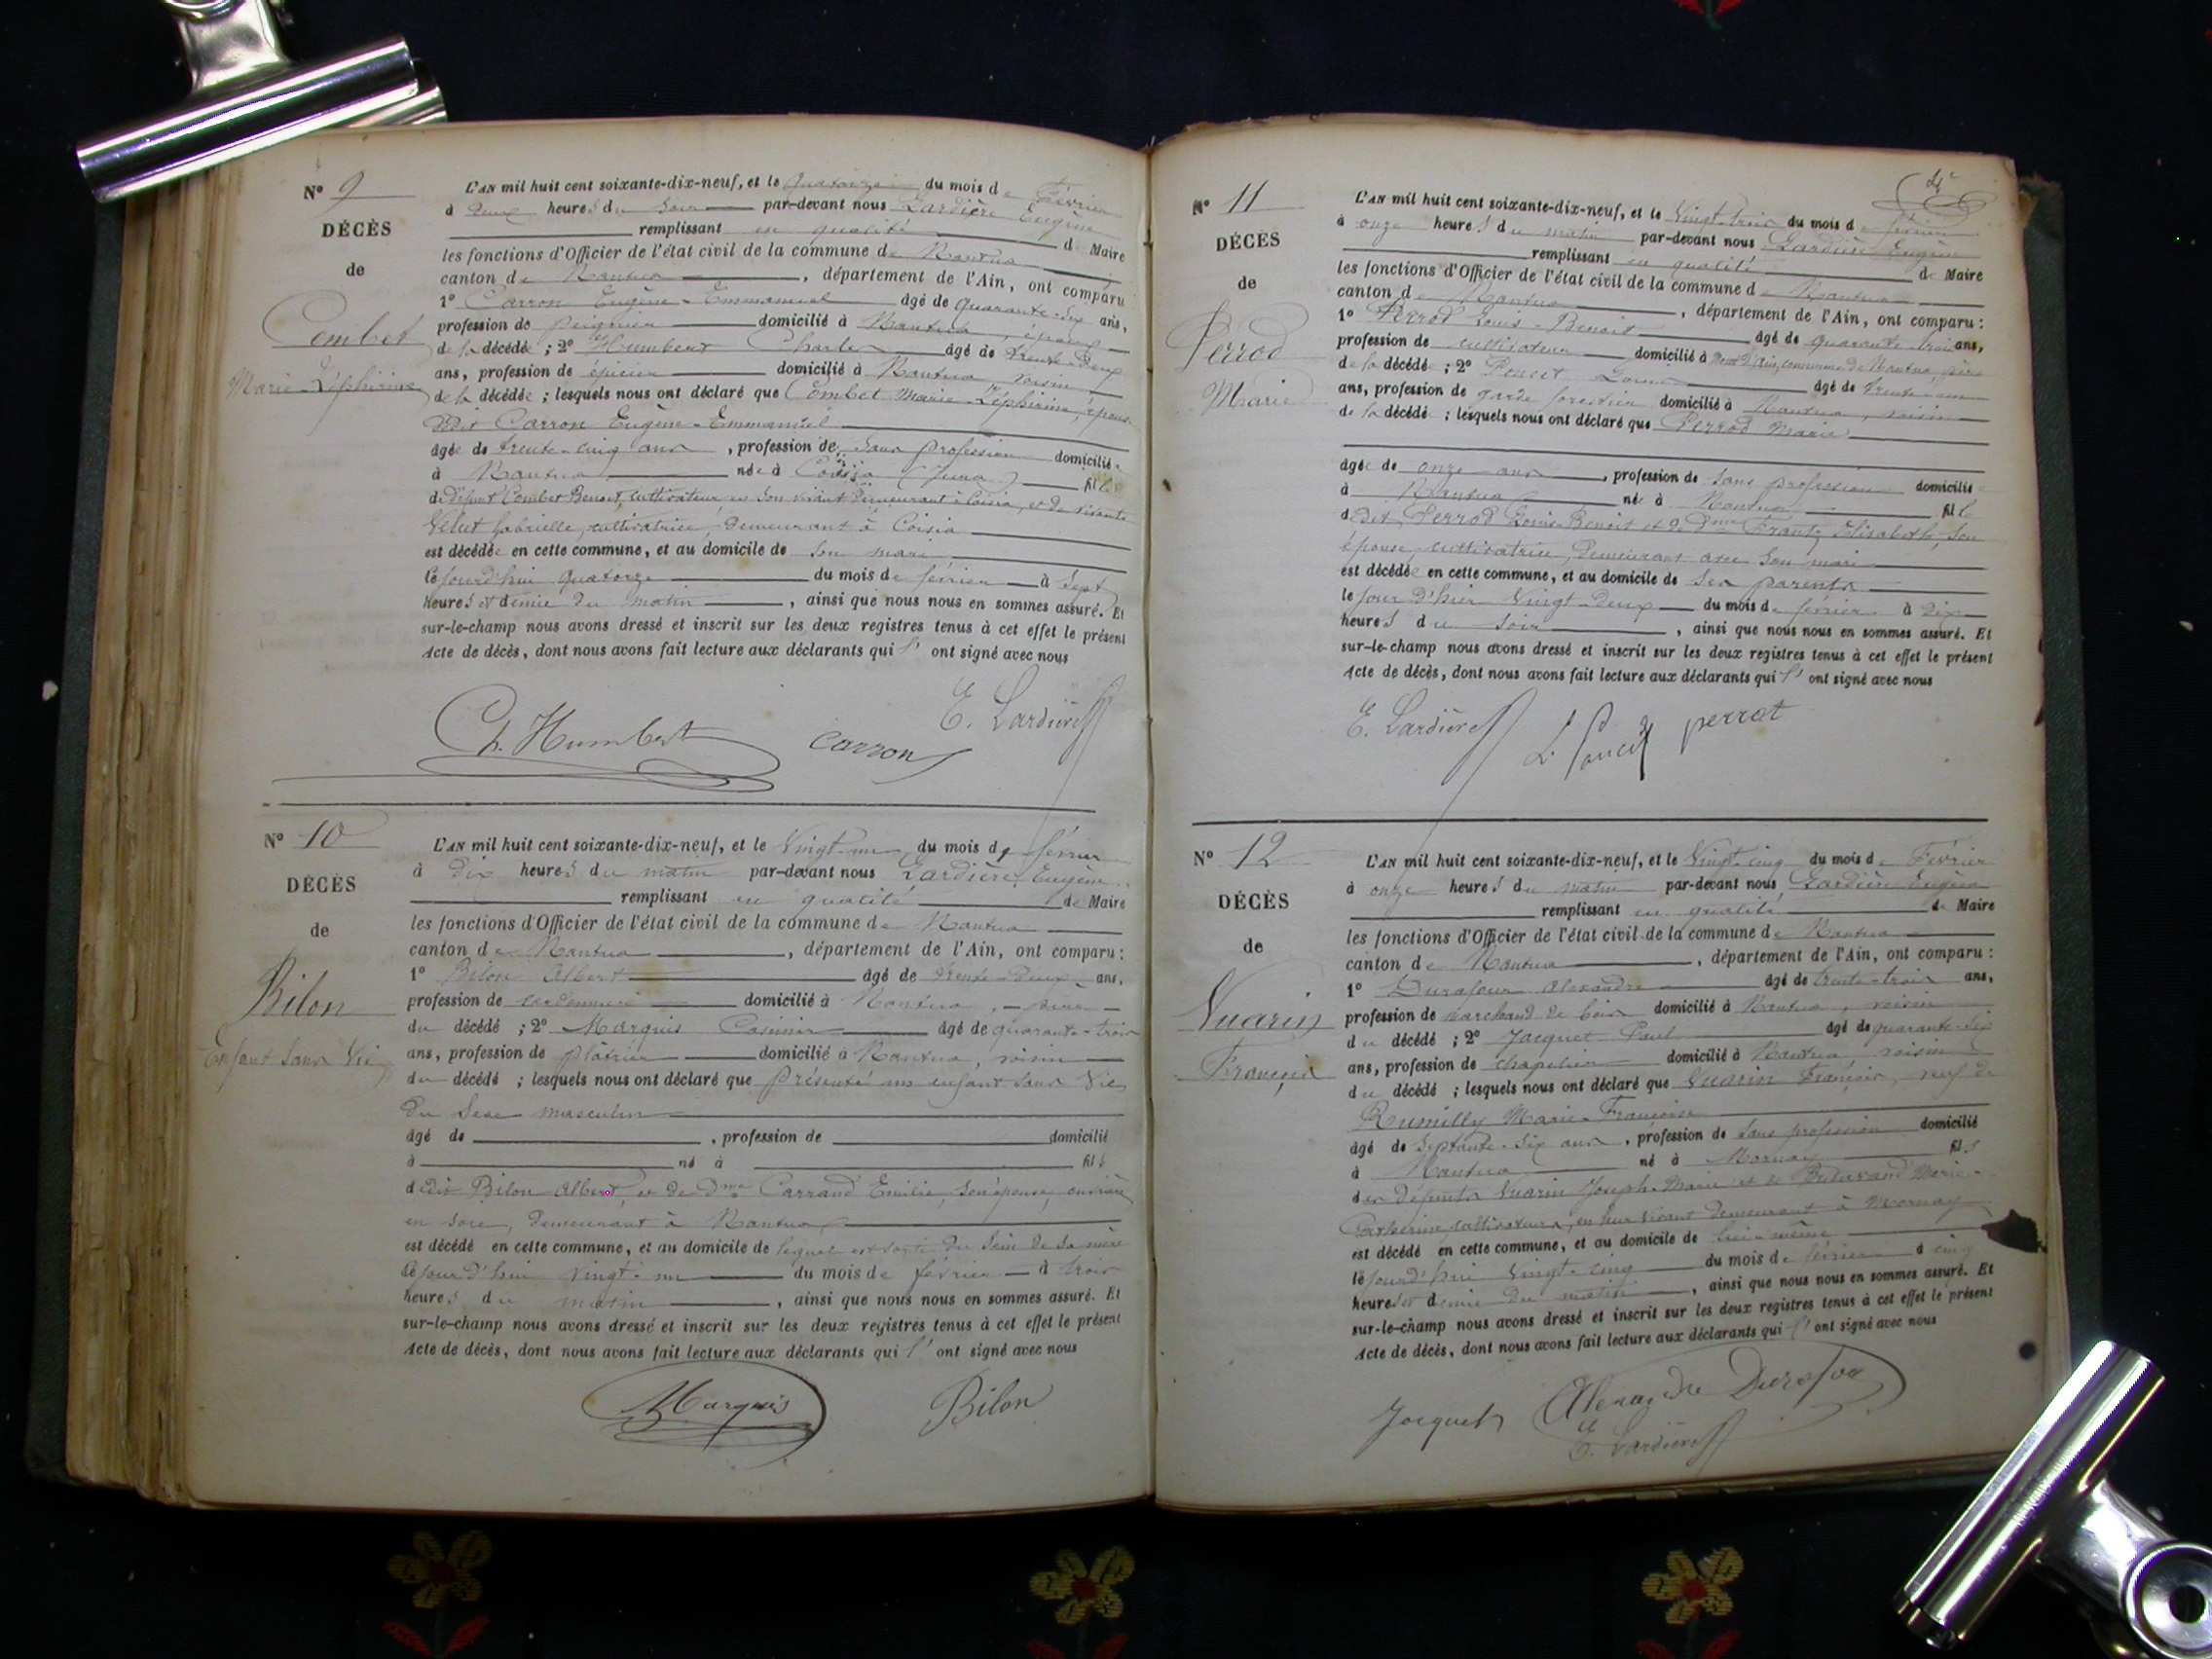 N° 9
DÉCÈS
de
Combet
Marie-Zéphirine
L'AN mil huit cent soixante-dix-neuf, et le quatorze du mois de Février
à deux heures du soir par-devant nous Lardière Eugène
remplissant en qualité de Maire
les fonctions d'Officier de l'état civil de la commune de Nantua
canton de Nantua, département de l'Ain, ont comparu
1° Carron Eugène-Emmanuel âgé de quarante-six ans,
profession de peignier domicilié à Nantua, époux
de la décédée ; 2° Humbert Charles âgé de trente-deux
ans, profession de épicier domicilié à Nantua voisin
de la décédée ; lesquels nous ont déclaré que Combet Marie-Zéphirine, épouse
dudit Carron Eugène-Emmanuel
âgée de trente-cinq ans, profession de sans profession domiciliée
à Nantua née à Coisia (Jura) fille
de défunt Combet Benoit, cultivateur en son vivant demeurant à Coisia, et de vivante
Velut Gabrielle, cultivatrice, demeurant à Coisia
est décédée en cette commune, et au domicile de son mari
cejourd'hui quatorze du mois de février à sept
heures et demie du matin, ainsi que nous nous en sommes assuré. Et
sur-le-champ nous avons dressé et inscrit sur les deux registres tenus à cet effet le présent
Acte de décès, dont nous avons fait lecture aux déclarants qui l'ont signé avec nous
Ch. Humbert carron E. Lardière
N° 10
DÉCÈS
de
Bilon
Enfant sans Vie
L'AN mil huit cent soixante-dix-neuf, et le Vingt-un du mois de février
à dix heures du matin par-devant nous Lardière Eugène
remplissant en qualité de Maire
les fonctions d'Officier de l'état civil de la commune de Nantua
canton de Nantua, département de l'Ain, ont comparu :
1° Bilon Albert âgé de trente-deux ans,
profession de cordonnier domicilié à Nantua, père
du décédé ; 2° Marquis Casimir âgé de quarante-trois
ans, profession de plâtrier domicilié à Nantua, voisin
du décédé ; lesquels nous ont déclaré que présenté un enfant sans Vie
du sexe masculin
âgé de , profession de domicilié
à né à fils
dudit Bilon Albert, et de Dme Carrand Emilie, son épouse, ouvrière
en soie, demeurant à Nantua
est décédé en cette commune, et au domicile de lequel est sorti du sein de sa mère
cejourd'hui vingt-un du mois de février à trois
heures du matin, ainsi que nous nous en sommes assuré. Et
sur-le-champ nous avons dressé et inscrit sur les deux registres tenus à cet effet le présent
Acte de décès, dont nous avons fait lecture aux déclarants qui l'ont signé avec nous
Marquis Bilon
N° 11
DÉCÈS
de
Perrod
Marie
L'AN mil huit cent soixante-dix-neuf, et le Vingt-trois du mois de février
à onze heures du matin par-devant nous Lardière Eugène
remplissant en qualité de Maire
les fonctions d'Officier de l'état civil de la commune de Nantua
canton de Nantua, département de l'Ain, ont comparu :
1° Perrod Louis-Benoit âgé de quarante-trois ans,
profession de cultivateur domicilié à commune de Nantua, père
de la décédée ; 2° âgé de trente-un
ans, profession de garde forestier domicilié à Nantua, voisin
de la décédé ; lesquels nous ont déclaré que Perrod Marie
âgée de onze ans, profession de sans profession domicilié
à Nantua né à Nantua fille
dudit Perrod Louis-Benoit et de Dme Elisabeth, son
épouse, cultivatrice, demeurant avec son mari
est décédée en cette commune, et au domicile de ses parents
le jour d'hier vingt-deux du mois de février à dix
heures du soir, ainsi que nous nous en sommes assuré. Et
sur-le-champ nous avons dressé et inscrit sur les deux registres tenus à cet effet le présent
Acte de décès, dont nous avons fait lecture aux déclarants qui l'ont signé avec nous
E. Lardière perrot
N° 12
DÉCÈS
de
Vuarin
François
L'AN mil huit cent soixante-dix-neuf, et le Vingt-cinq du mois de Février
à onze heures du matin par-devant nous Lardière Eugène
remplissant en qualité de Maire
les fonctions d'Officier de l'état civil de la commune de Nantua
canton de Nantua, département de l'Ain, ont comparu :
1° Durafour Alexandre âgé de trente-trois ans,
profession de marchand de bois domicilié à Nantua, voisin
du décédé ; 2° Jacquet Paul âgé de quarante-six
ans, profession de chapelier domicilié à Nantua, voisin
du décédé ; lesquels nous ont déclaré que Vuarin François, veuf de
Rumilly Marie-Françoise
âgé de septante-six ans, profession de sans profession domicilié
à Nantua né à Mornay fils
des défunts Vuarin Joseph-Marie et de Marie-
Catherine, cultivateurs, en leur vivant demeurant à Mornay
est décédé en cette commune, et au domicile de lui-même
cejourd'hui vingt-cinq du mois de février à cinq
heures et demie du matin, ainsi que nous nous en sommes assuré. Et
sur-le-champ nous avons dressé et inscrit sur les deux registres tenus à cet effet le présent
Acte de décès, dont nous avons fait lecture aux déclarants qui l'ont signé avec nous
Jacquet Alexandre Durafour
E. Lardière